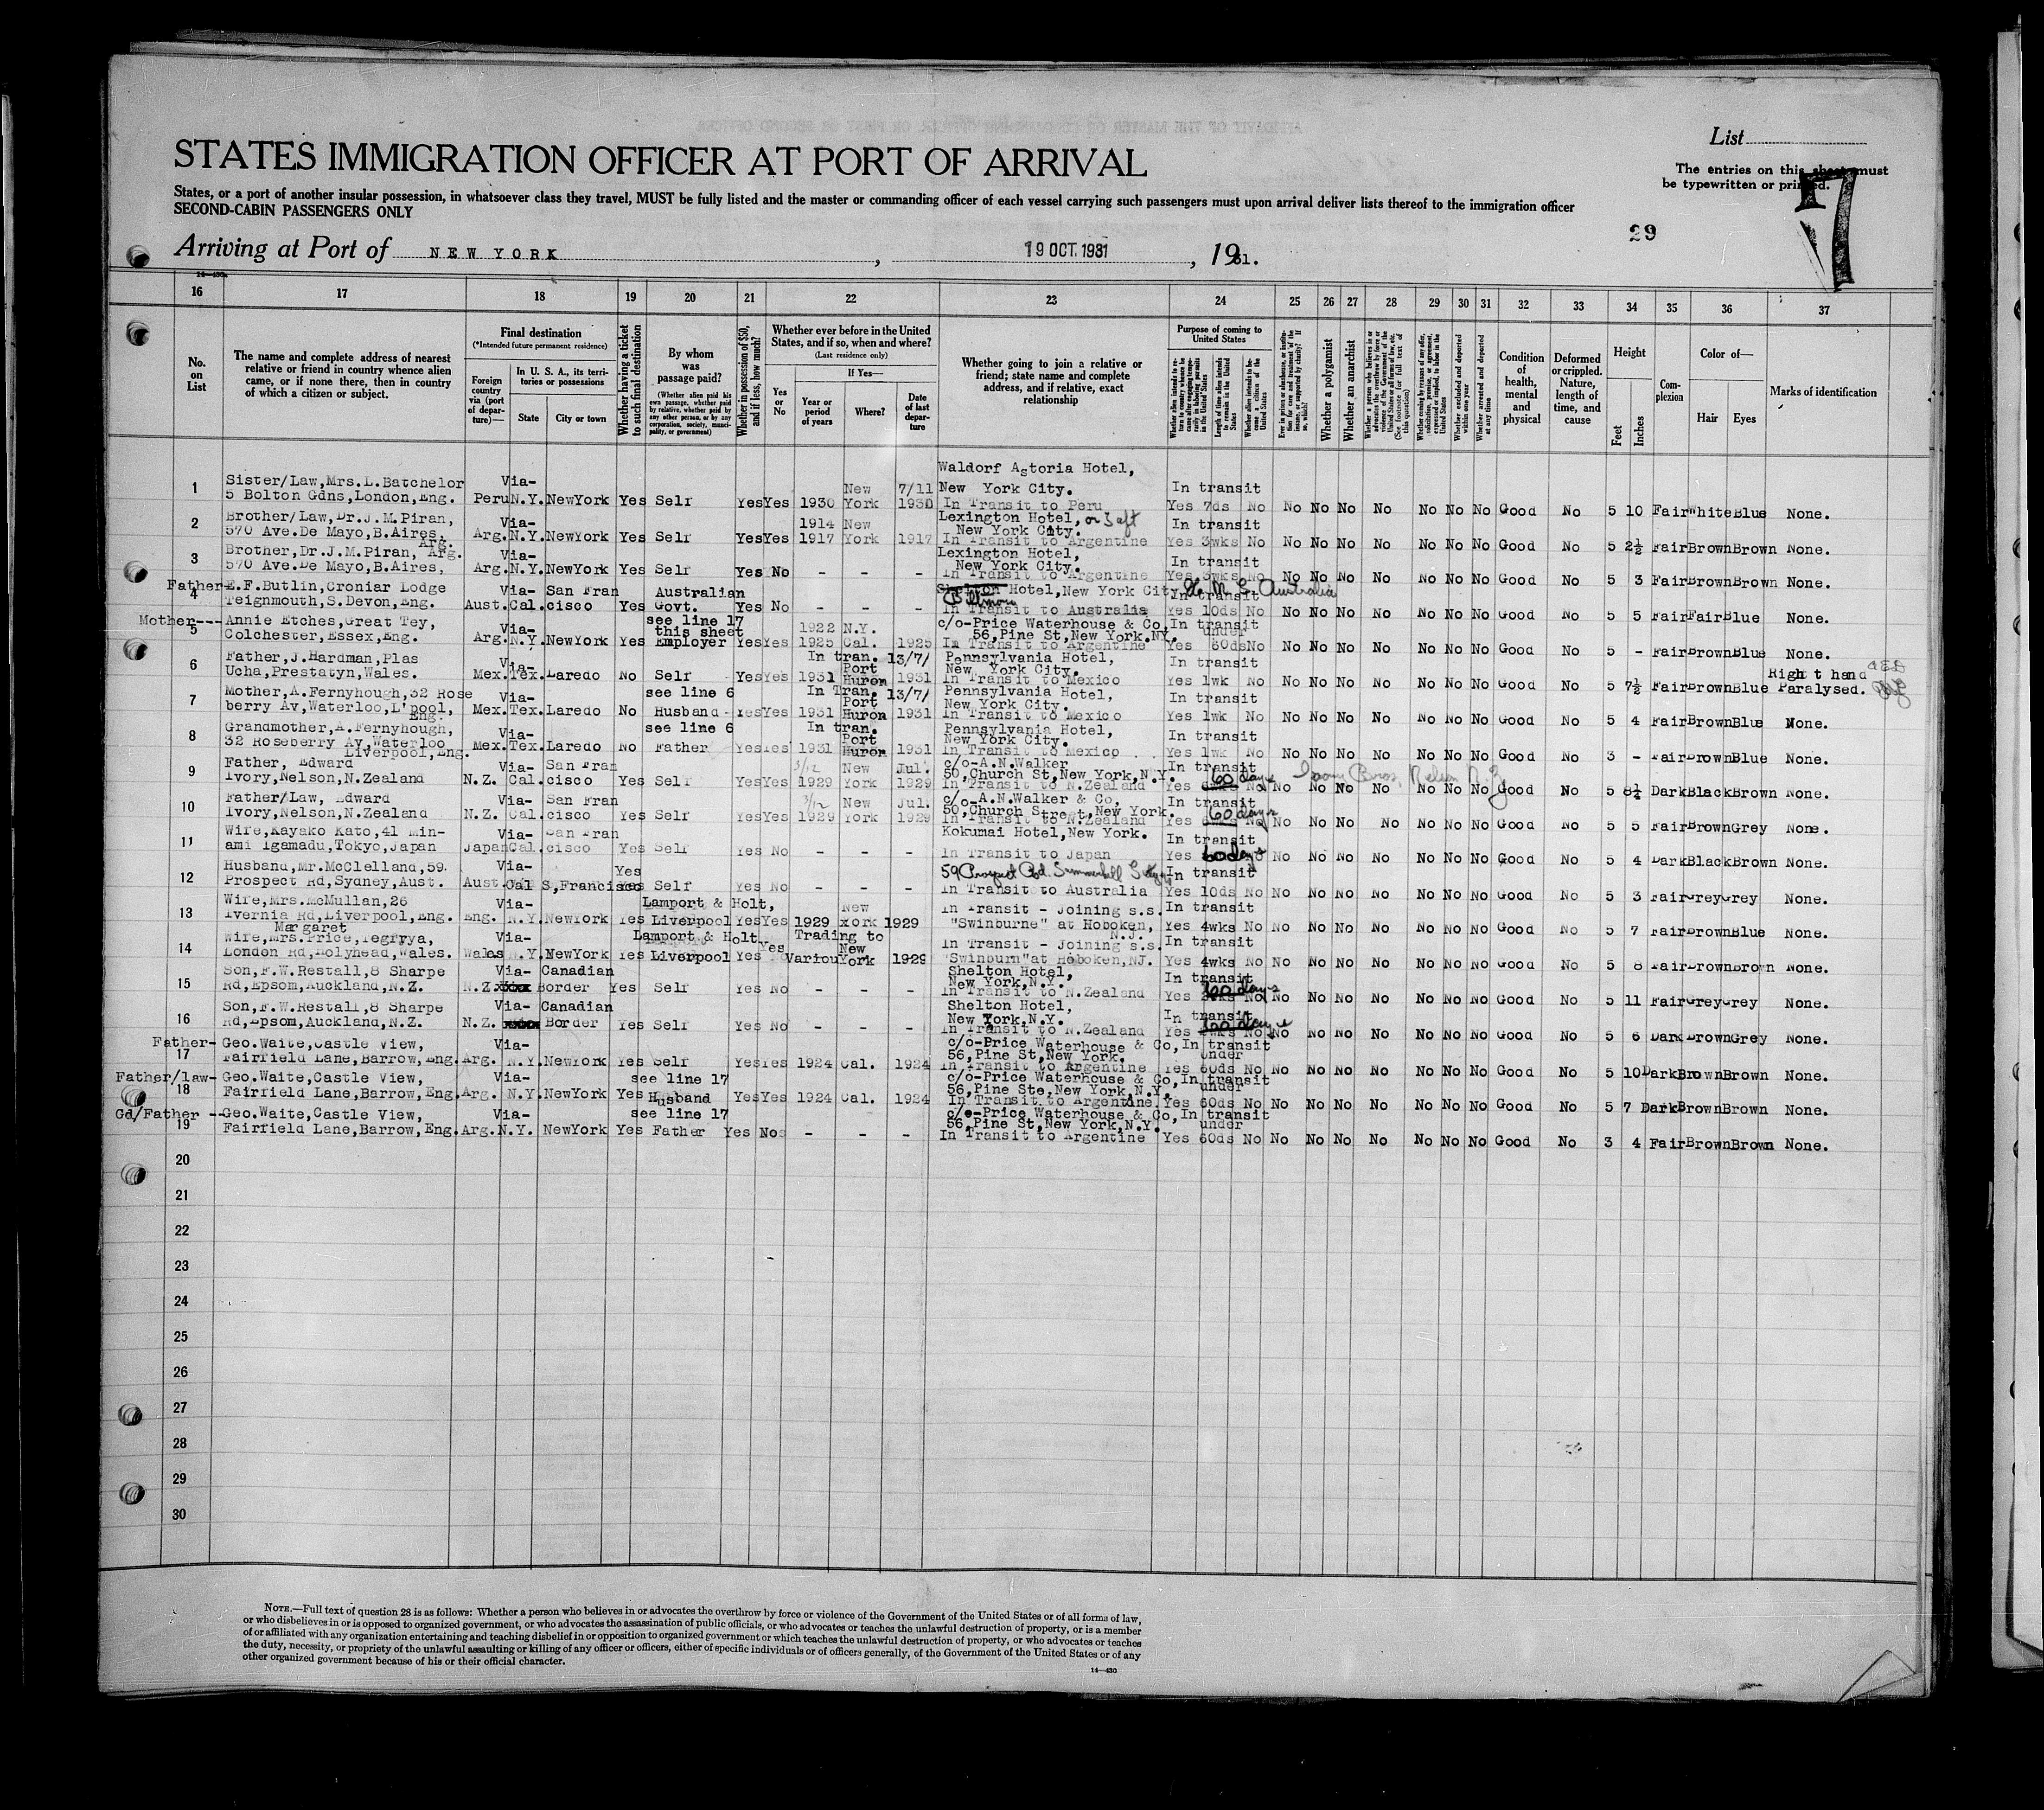 List
STATES IMMIGRATION OFFICER AT PORT OF ARRIVAL
The entries on this sheet must
be typewritten or printed.
7
States, or a port of another insular possession, in whatsoever class they travel, MUST be fully listed and the master or commanding officer of each vessel carrying such passengers must upon arrival deliver lists thereof to the immigration officer
SECOND-CABIN PASSENGERS ONLY
29
Arriving at Port of NEW YORK, 19 OCT. 1931, 1931.
14—430
16 17 18 19 20 21 22 23 24 25 26 27 28 29 30 31 32 33 34 35 36 37
No. on List
The name and complete address of nearest relative or friend in country whence alien came, or if none there, then in country of which a citizen or subject.
Final destination
(*Intended future permanent residence)
Foreign country via (port of departure)—
In U. S. A., its territories or possessions
State
City or town
Whether having a ticket to such final destination
By whom was passage paid?
(Whether alien paid his own passage, whether paid by relative, whether paid by any other person, or by any corporation, society, municipality, or government)
Whether in possession of $50, and if less, how much?
Whether ever before in the United States, and if so, when and where?
(Last residence only)
Yes or No
If Yes—
Year or period of years
Where?
Date of last departure
Whether going to join a relative or friend; state name and complete address, and if relative, exact relationship
Purpose of coming to United States
Length of time alien intends to remain in the United States
Whether alien intends to become a citizen of the United States
Whether a polygamist
Whether an anarchist
Whether excluded and deported within one year
Whether arrested and deported at any time
Condition of health, mental and physical
Deformed or crippled. Nature, length of time, and cause
Height
Feet
Inches
Complexion
Color of—
Hair
Eyes
Marks of identification
1 Sister/Law,Mrs.L.Batchelor Via- New 7/11 Waldorf Astoria Hotel, New York City. In transit
5 Bolton Gdns,London,Eng. Peru N.Y. NewYork Yes Self Yes Yes 1930 York 1930 In Transit to Peru Yes 7ds No No No No No No No No Good No 5 10 Fair White Blue None.
2 Brother/Law,Dr.J.M.Piran, Via- 1914 New Lexington Hotel, In transit
570 Ave.De Mayo,B.Aires, Arg. Arg. N.Y. NewYork Yes Self Yes Yes 1917 York 1917 New York City. In Transit to Argentine Yes 3wks No No No No No No No No Good No 5 2½ Fair Brown Brown None.
3 Brother,Dr.J.M.Piran, Arg. Via- Lexington Hotel, In transit
570 Ave.De Mayo,B.Aires, Arg. N.Y. NewYork Yes Self Yes No - - - New York City. In Transit to Argentine Yes 3wks No No No No No No No No Good No 5 3 Fair Brown Brown None.
4 Father-E.F.Butlin,Croniar Lodge Via- San Fran Australian Shelton Hotel,New York City Biltmore In transit Australia
Teignmouth,S.Devon,Eng. Aust. Cal. cisco Yes Govt. Yes No - - - In Transit to Australia Yes 10ds No No No No No No No No Good No 5 5 Fair Fair Blue None.
5 Mother--- Annie Etches,Great Tey, Via- see line 17 this sheet 1922 N.Y. c/o-Price Waterhouse & Co, In transit
Colchester,Essex,Eng. Arg. N.Y. NewYork Yes Employer Yes Yes 1925 Cal. 1925 56,Pine St,New York.NY. In Transit to Argentine Yes under 60ds No No No No No No No No Good No 5 - Fair Brown Blue None.
6 Father,J.Hardman,Plas Via- In tran. Port 13/7/ Pennsylvania Hotel, In transit
Ucha,Prestatyn,Wales. Mex. Tex. Laredo No Self Yes Yes 1931 Huron 1931 New York City. In Transit to Mexico Yes 1wk No No No No No No No No Good No 5 7½ Fair Brown Blue Right hand Paralysed.
7 Mother,A.Fernyhough,32 Rose Via- see line 6 In Tran. Port 13/7/ Pennsylvania Hotel, In transit
berry Av,Waterloo,L'pool, Eng. Mex. Tex. Laredo No Husband Yes Yes 1931 Huron 1931 New York City. In Transit to Mexico Yes 1wk No No No No No No No No Good No 5 4 Fair Brown Blue None.
8 Grandmother,A.Fernyhough, Via- see line 6 In tran. Port Pennsylvania Hotel, In transit
32 Roseberry Av,Waterloo Liverpool,Eng. Mex. Tex. Laredo No Father Yes Yes 1931 Huron 1931 New York City. In Transit to Mexico Yes 1wk No No No No No No No No Good No 3 - Fair Brown Blue None.
9 Father, Edward Via- San Fran 3/12 New Jul. c/o-A.N.Walker In transit
Ivory,Nelson,N.Zealand N.Z. Cal. cisco Yes Self Yes Yes 1929 York 1929 50,Church St,New York,N.Y. In Transit to N.Zealand Yes 60 days No No No No No No No No Good No 5 8¼ Dark Black Brown None.
10 Father/Law, Edward Via- San Fran 3/12 New Jul. c/o-A.N.Walker & Co, In transit
Ivory,Nelson,N.Zealand N.Z. Cal. cisco Yes Self Yes Yes 1929 York 1929 50,Church Street,New York. In Transit to N.Zealand Yes 60 days No No No No No No No No Good No 5 5 Fair Brown Grey None.
11 Wife,Kayako Kato,41 Min- Via- San Fran Kokumai Hotel,New York. In transit
ami Igamadu,Tokyo,Japan Japan Cal. cisco Yes Self Yes No - - - In Transit to Japan Yes 60 days No No No No No No No No Good No 5 4 Dark Black Brown None.
12 Husband,Mr.McClelland,59. Via- Yes 59 Prospect Rd. Summerhill Sydney In transit
Prospect Rd,Sydney,Aust. Aust. Cal S,Francisco Yes Self Yes No - - - In Transit to Australia Yes 10ds No No No No No No No No Good No 5 3 Fair Grey Grey None.
13 Wife,Mrs.McMullan,26 Via- Lamport & Holt, New In Transit - Joining s.s. In transit
Ivernia Rd,Liverpool,Eng. Eng. N.Y. NewYork Yes Liverpool Yes Yes 1929 York 1929 "Swinburne" at Hoboken, N.J. Yes 4wks No No No No No No No No Good No 5 7 Fair Brown Blue None.
14 Margaret Wife,Mrs.Price,Tegfryya, Via- Lamport & Holt Yes Trading to New In Transit - Joining s.s. In transit
London Rd,Holyhead,Wales. Wales N.Y. NewYork Yes Liverpool Yes Variou York 1929 "Swinburn"at Hoboken,NJ. Yes 4wks No No No No No No No No Good No 5 8 Fair Brown Brown None.
15 Son,F.W.Restall,8 Sharpe Via- Canadian Shelton Hotel, New York,N.Y. In transit
Rd,Epsom,Auckland,N.Z. N.Z. Border Yes Self Yes No - - - In Transit to N.Zealand Yes 60 days No No No No No No No No Good No 5 11 Fair Grey Grey None.
16 Son,F.W.Restall,8 Sharpe Via- Canadian Shelton Hotel, New York,N.Y. In transit
Rd,Epsom,Auckland,N.Z. N.Z. Border Yes Self Yes No - - - In Transit to N.Zealand Yes 60 days No No No No No No No No Good No 5 6 Dark Brown Grey None.
17 Father- Geo.Waite,Castle View, Via- c/o-Price Waterhouse & Co, In transit
Fairfield Lane,Barrow,Eng. Arg. N.Y. NewYork Yes Self Yes Yes 1924 Cal. 1924 56,Pine St,New York. In Transit to Argentine Yes under 60ds No No No No No No No No Good No 5 10 Dark Brown Brown None.
18 Father/law- Geo.Waite,Castle View, Via- see line 17 c/o-Price Waterhouse & Co, In transit
Fairfield Lane,Barrow,Eng. Arg. N.Y. NewYork Yes Husband Yes Yes 1924 Cal. 1924 56,Pine Ste,New York,N.Y. In Transit to Argentine. Yes under 60ds No No No No No No No No Good No 5 7 Dark Brown Brown None.
19 Gd/Father -- Geo.Waite,Castle View, Via- see line 17 c/o-Price Waterhouse & Co, In transit
Fairfield Lane,Barrow,Eng. Arg. N.Y. NewYork Yes Father Yes No - - - 56,Pine St,New York,N.Y. In Transit to Argentine Yes under 60ds No No No No No No No No Good No 3 4 Fair Brown Brown None.
20
21
22
23
24
25
26
27
28
29
30
NOTE.—Full text of question 28 is as follows: Whether a person who believes in or advocates the overthrow by force or violence of the Government of the United States or of all forms of law,
or who disbelieves in or is opposed to organized government, or who advocates the assassination of public officials, or who advocates or teaches the unlawful destruction of property, or is a member
of or affiliated with any organization entertaining and teaching disbelief in or opposition to organized government or which teaches the unlawful destruction of property, or who advocates or teaches
the duty, necessity, or propriety of the unlawful assaulting or killing of any officer or officers, either of specific individuals or of officers generally, of the Government of the United States or of any
other organized government because of his or their official character.
14—430